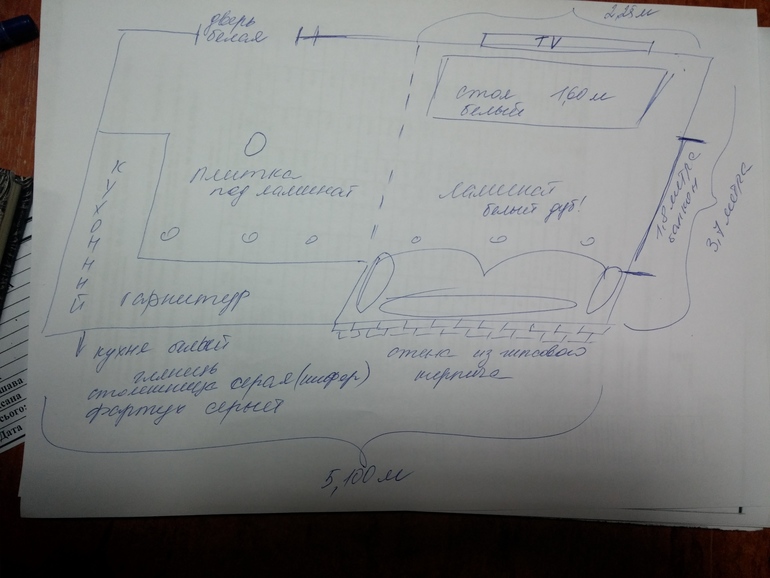 дверь
белая
2,25м
TV
стол 1,60 м
белый
плитка
под ламинат
ламинат
белый дуб!
1,8 метра
балкон
3,7 метра
кухонный
гарнитур
кухня белый
глянець
столешница серая (шифер)
фартук серый
стена из гипсового
кирпича
5,100 м
Дата